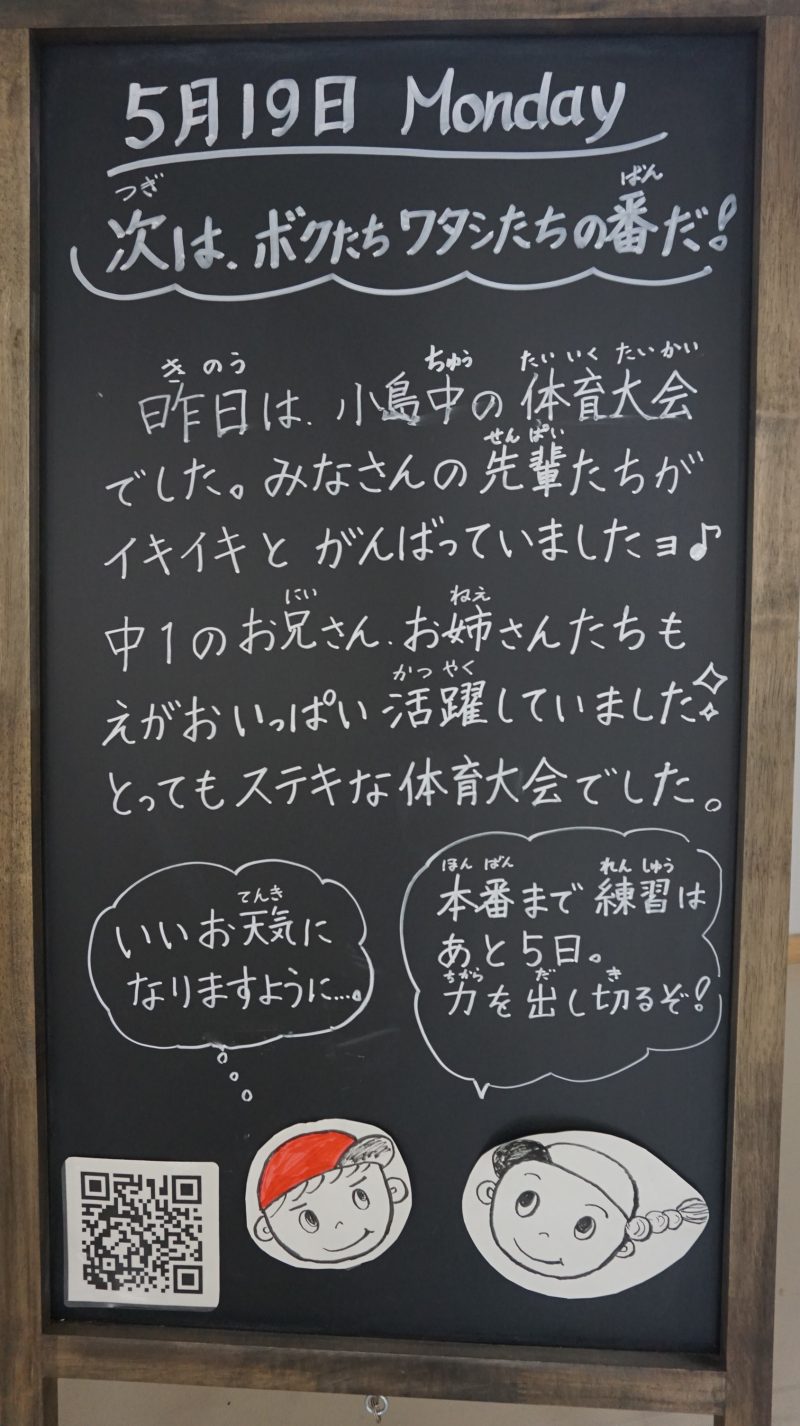 5月19日 Monday
つぎ ばん
次は、ボクたちワタシたちの番だ!
きのう ちゅう たいいくたいかい
昨日は、小島中の体育大会
せんぱい
でした。みなさんの先輩たちが
イキイキと がんばっていましたョ♪
にい ねえ
中1のお兄さん、お姉さんたちも
かつやく
えがおいっぱい活躍していました
とってもステキな体育大会でした。
てんき
いいお天気に
なりますように…。
ほんばん れんしゅう
本番まで練習は
あと5日。
ちから だ き
力を出し切るぞ!